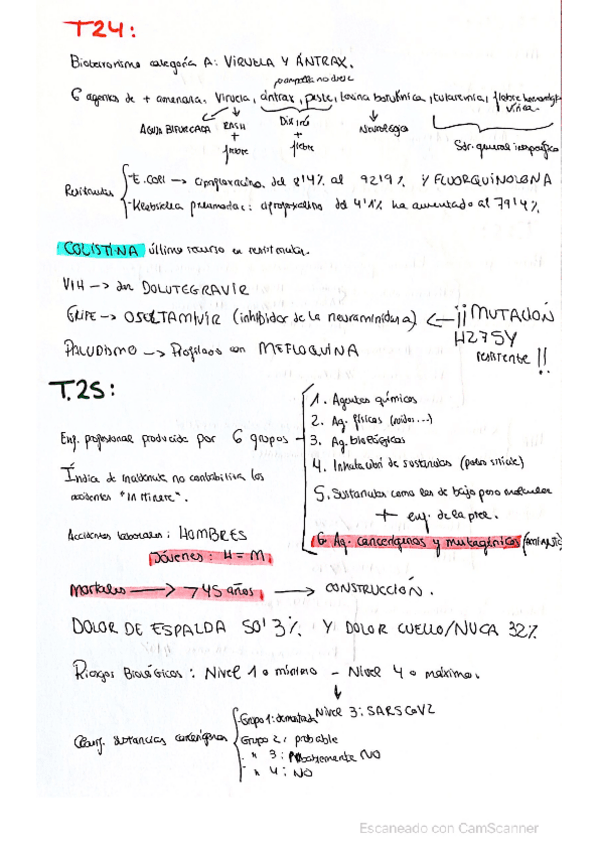 T24:
Bioterrorismo categoría A: VIRUELA Y ÁNTRAX.
6 agentes de + amenaza. Viruela, ántrax, peste, toxina botulínica, tularemia, fiebre hemorrág. vírica.
AGUJA BIFURCADA RASH + fiebre
+ fiebre
Neurología
Sdr. general inespecífico
Resistencias
- E. COLI → ciprofloxacino. del 8'4% al 92'9% Y FLUORQUINOLONA
- Klebsiella pneumoniae: ciprofloxacino del 4'1% ha aumentado al 79'4%.
COLISTINA último recurso en
VIH → dar DOLUTEGRAVIR
GRIPE → OSELTAMIVIR (inhibidor de la neuraminidasa) ← ¡¡MUTACIÓN
H275Y
resistente!!
PALUDISMO → Profilaxis con MEFLOQUINA
T.25:
Enf. profesional producida por 6 grupos
1. Agentes químicos
2. Ag. físicos (ruidos...)
3. Ag. biológicos
4. Inhalación de sustancias (polvo sílice)
5. Sustancias como las de bajo peso molecular
+ enf. de la piel.
6 Ag. cancerígenos y mutagénicos
Índice de incidencia no contabiliza los
accidentes "in itinere".
Accidentes laborales: HOMBRES
Jóvenes: H = M.
Mortales → > 45 años → CONSTRUCCIÓN.
DOLOR DE ESPALDA 50'3% Y DOLOR CUELLO/NUCA 32%
Riesgos Biológicos: Nivel 1 o mínimo - Nivel 4 o máximo.
↓
Nivel 3: SARSCoV2
Clasif. sustancias cancerígenas
- Grupo 1: demostrada
Grupo 2: probable
" 3: Probablemente NO
" 4: NO
Escaneado con CamScanner